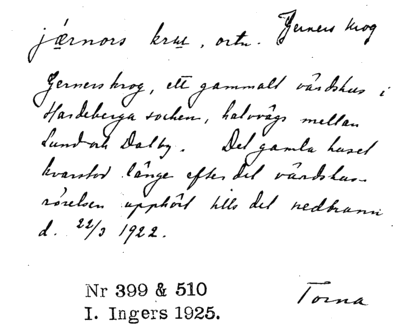 jǽrnors krωl, ortn. Gerners krog
Gerners krog, ett gammalt värdshus i
Hardeberga socken, halvvägs mellan
Lund och Dalby. Det gamla huset
kvarstod länge efter det värdshus-
rörelsen upphört tills det nedbrann
d. 22/3 1922.
Nr 399 & 510
Torna
I. Ingers 1925.